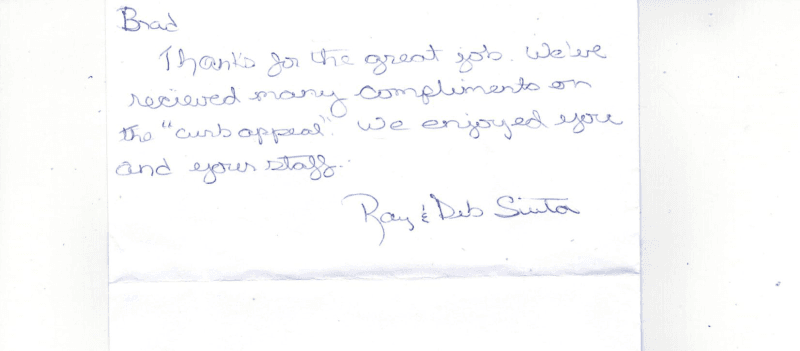 Brad
Thanks for the great job. We've
recieved many compliments on
the "curb appeal". We enjoyed you
and your staff.
Ray & Deb Siuta